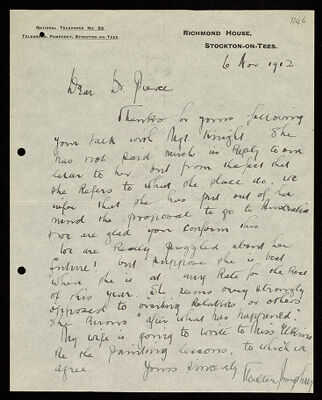 1146
NATIONAL TELEPHONE No. 89.
TELEGRAMS, PUMPHREY, STOCKTON-ON-TEES.
RICHMOND HOUSE,
STOCKTON-ON-TEES.
6 Nov 1912
Dear Dr. Pierce
Thanks for yours following
your talk with Mgt Knight. She
has not said much in reply to our
letter to her but from the fact that
she refers to what she shall do, we
infer that she has put out of her
mind the proposal to go to Australia
& we are glad you confirm this
We are really puzzled about her
future! but suppose she is best
where she is at any rate for the rest
of this year. She seems very strongly
opposed to meeting relatives or others
she knows "after what has happened".
My wife is going to write to Miss
re the painting lessons, to which we
agree Yours sincerely Pumphrey